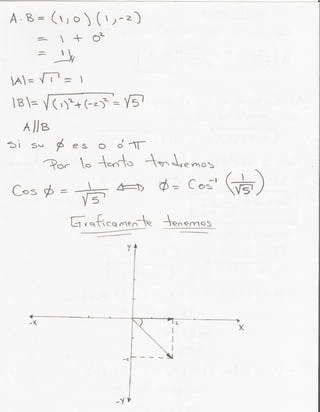 A · B = (1, 0) (1, -2)
= 1 + 0²
= 1
|A| = √1 = 1
|B| = √(1)² + (-2)² = √5
A // B
Si su ϕ es 0 ó π
Por lo tanto tendremos
Cos ϕ = 1/√5 ⟺ ϕ = Cos⁻¹ (1/√5)
Graficamente tenemos
y
-x
2
x
-y